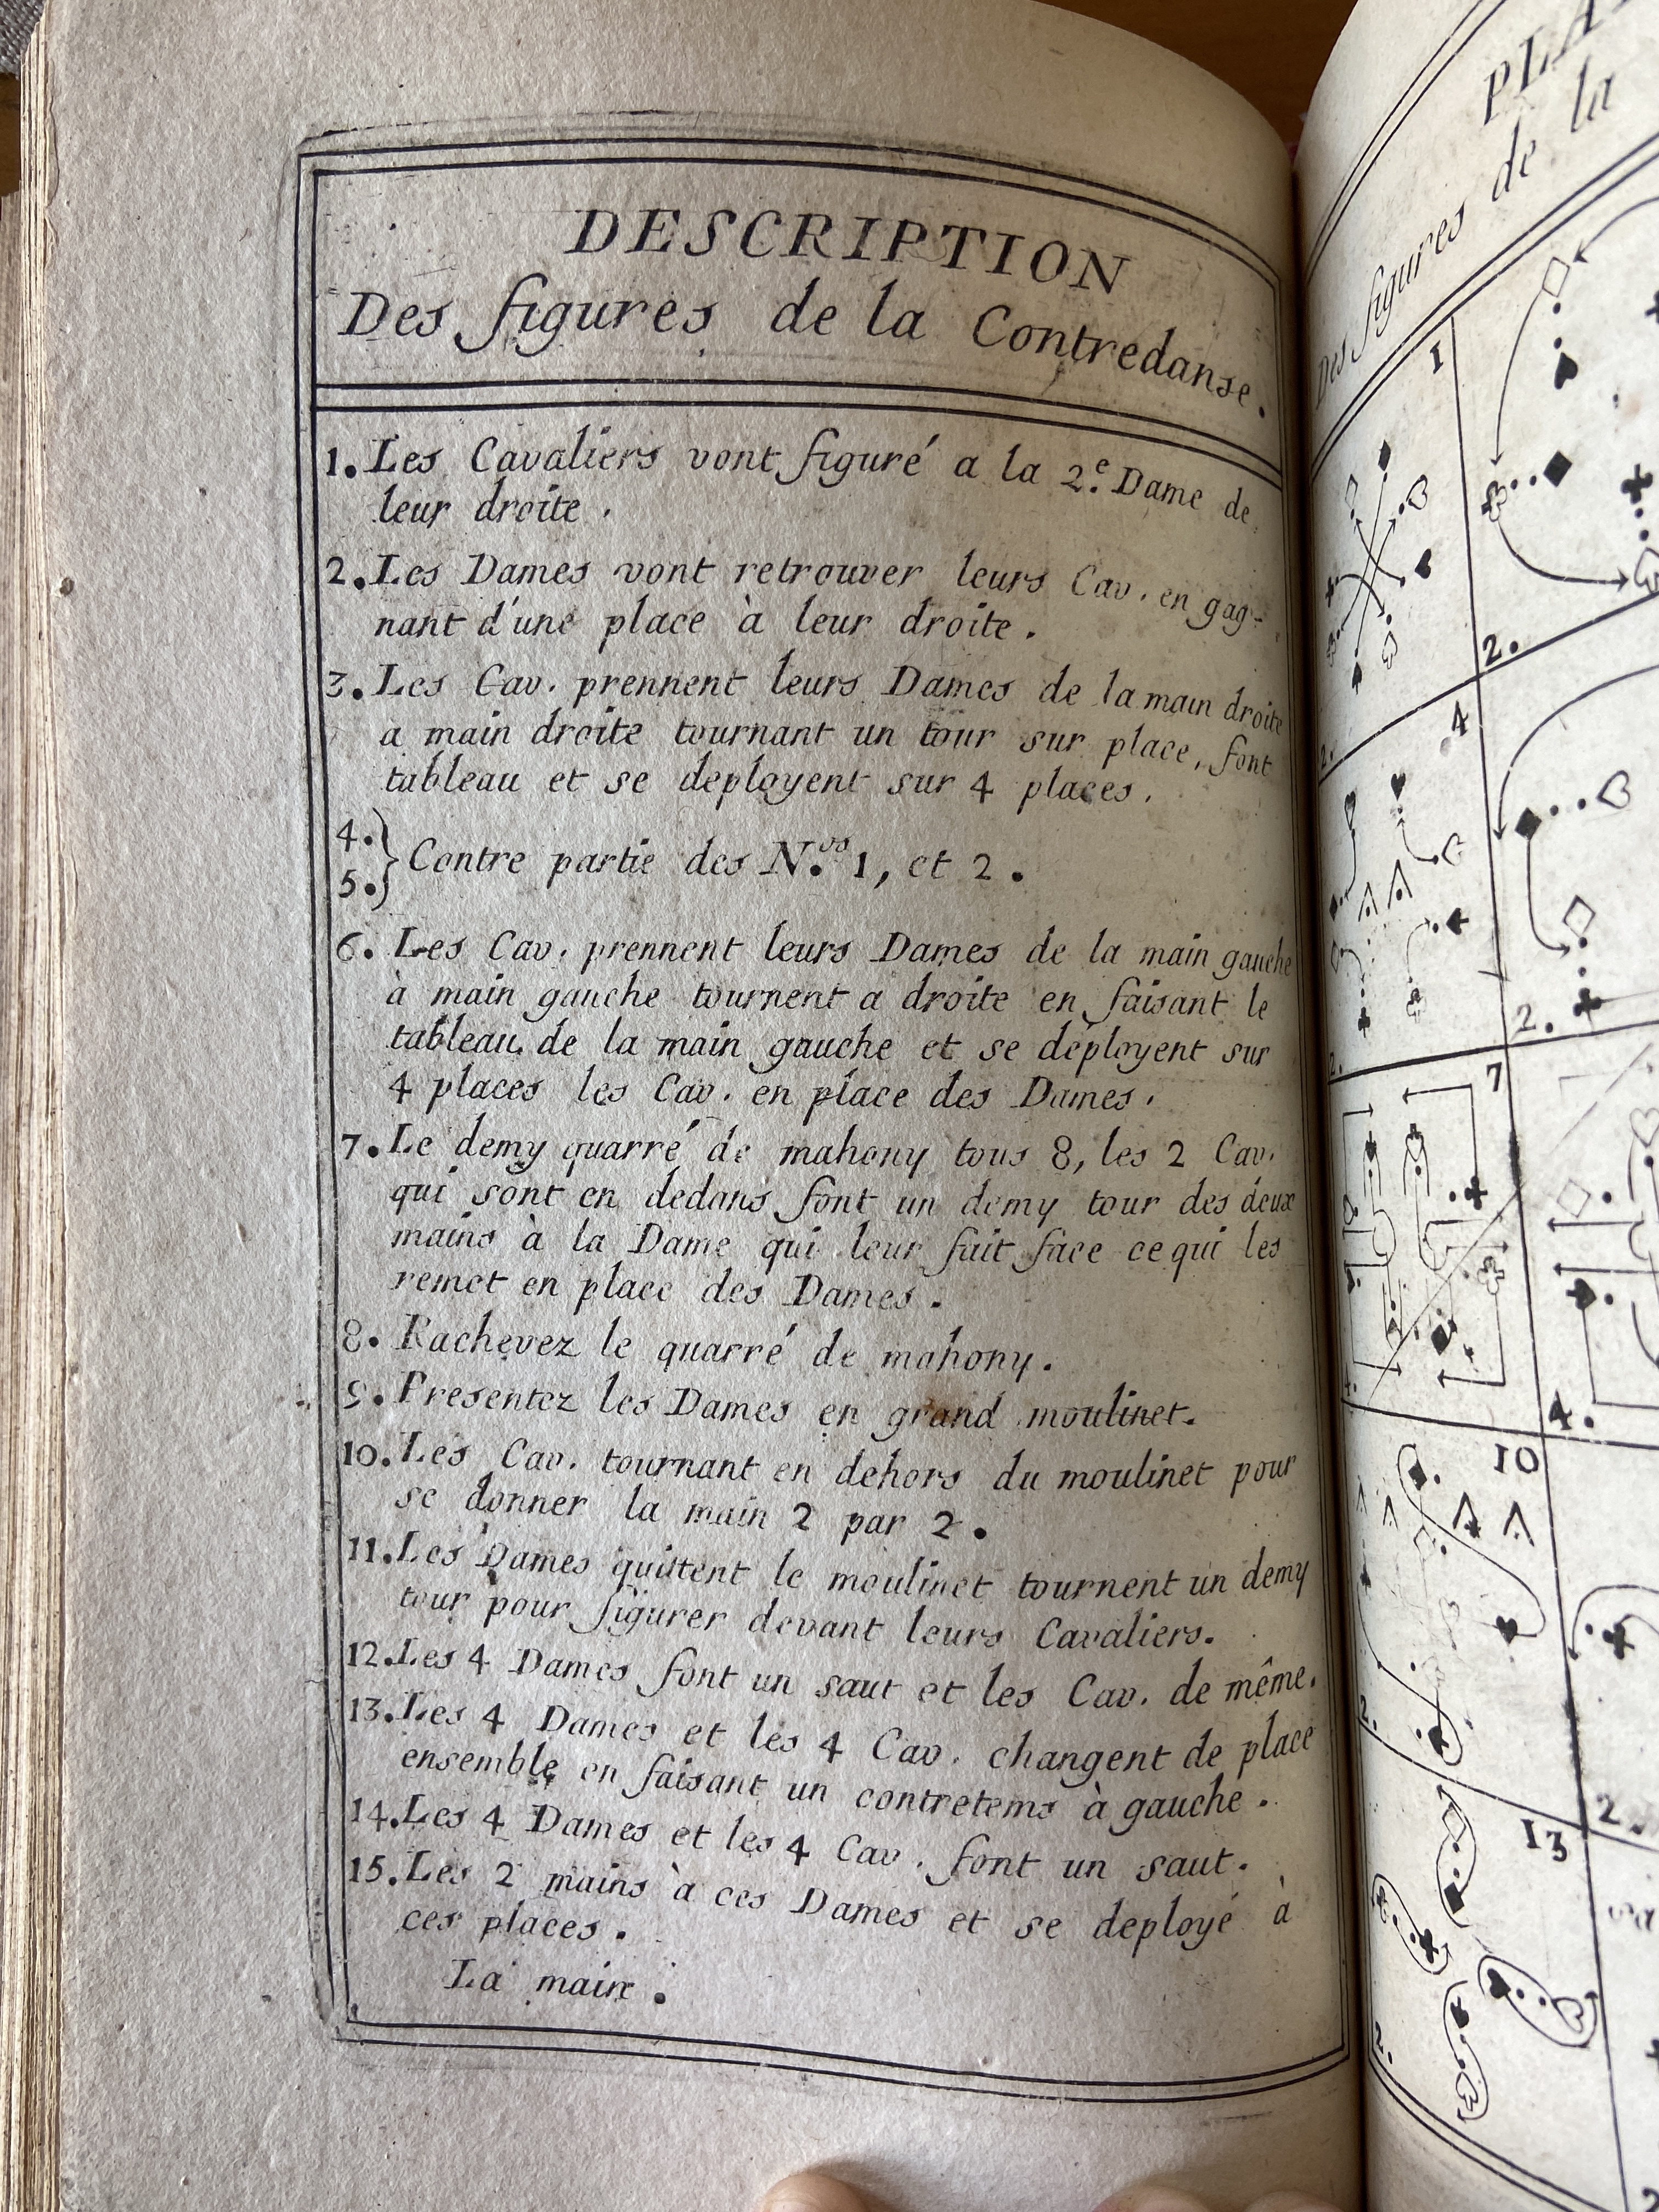 DESCRIPTION
Des figures de la Contredanse.
1. Les Cavaliers vont figuré a la 2.e Dame de
leur droite.
2. Les Dames vont retrouver leurs Cav. en gag-
nant d'une place à leur droite.
3. Les Cav. prennent leurs Dames de la main droite
a main droite tournant un tour sur place, font
tableau et se deployent sur 4 places.
4.
5.} Contre partie des N.os 1, et 2.
6. Les Cav. prennent leurs Dames de la main gauche
à main gauche tournent a droite en faisant le
tableau de la main gauche et se déployent sur
4 places les Cav. en place des Dames.
7. Le demy quarré de mahony tous 8, les 2 Cav.
qui sont en dedans font un demy tour des deux
mains à la Dame qui leur fait face ce qui les
remet en place des Dames.
8. Rachevez le quarré de mahony.
9. Presentez les Dames en grand moulinet.
10. Les Cav. tournant en dehors du moulinet pour
se donner la main 2 par 2.
11. Les Dames quittent le moulinet tournent un demy
tour pour figurer devant leurs Cavaliers.
12. Les 4 Dames font un saut et les Cav. de même.
13. Les 4 Dames et les 4 Cav. changent de place
ensemble en faisant un contretems à gauche.
14. Les 4 Dames et les 4 Cav. font un saut.
15. Les 2 mains à ces Dames et se deployé à
ces places.
La main.
Des figures de la
1
2.
4
2.
7
4.
10
2.
13